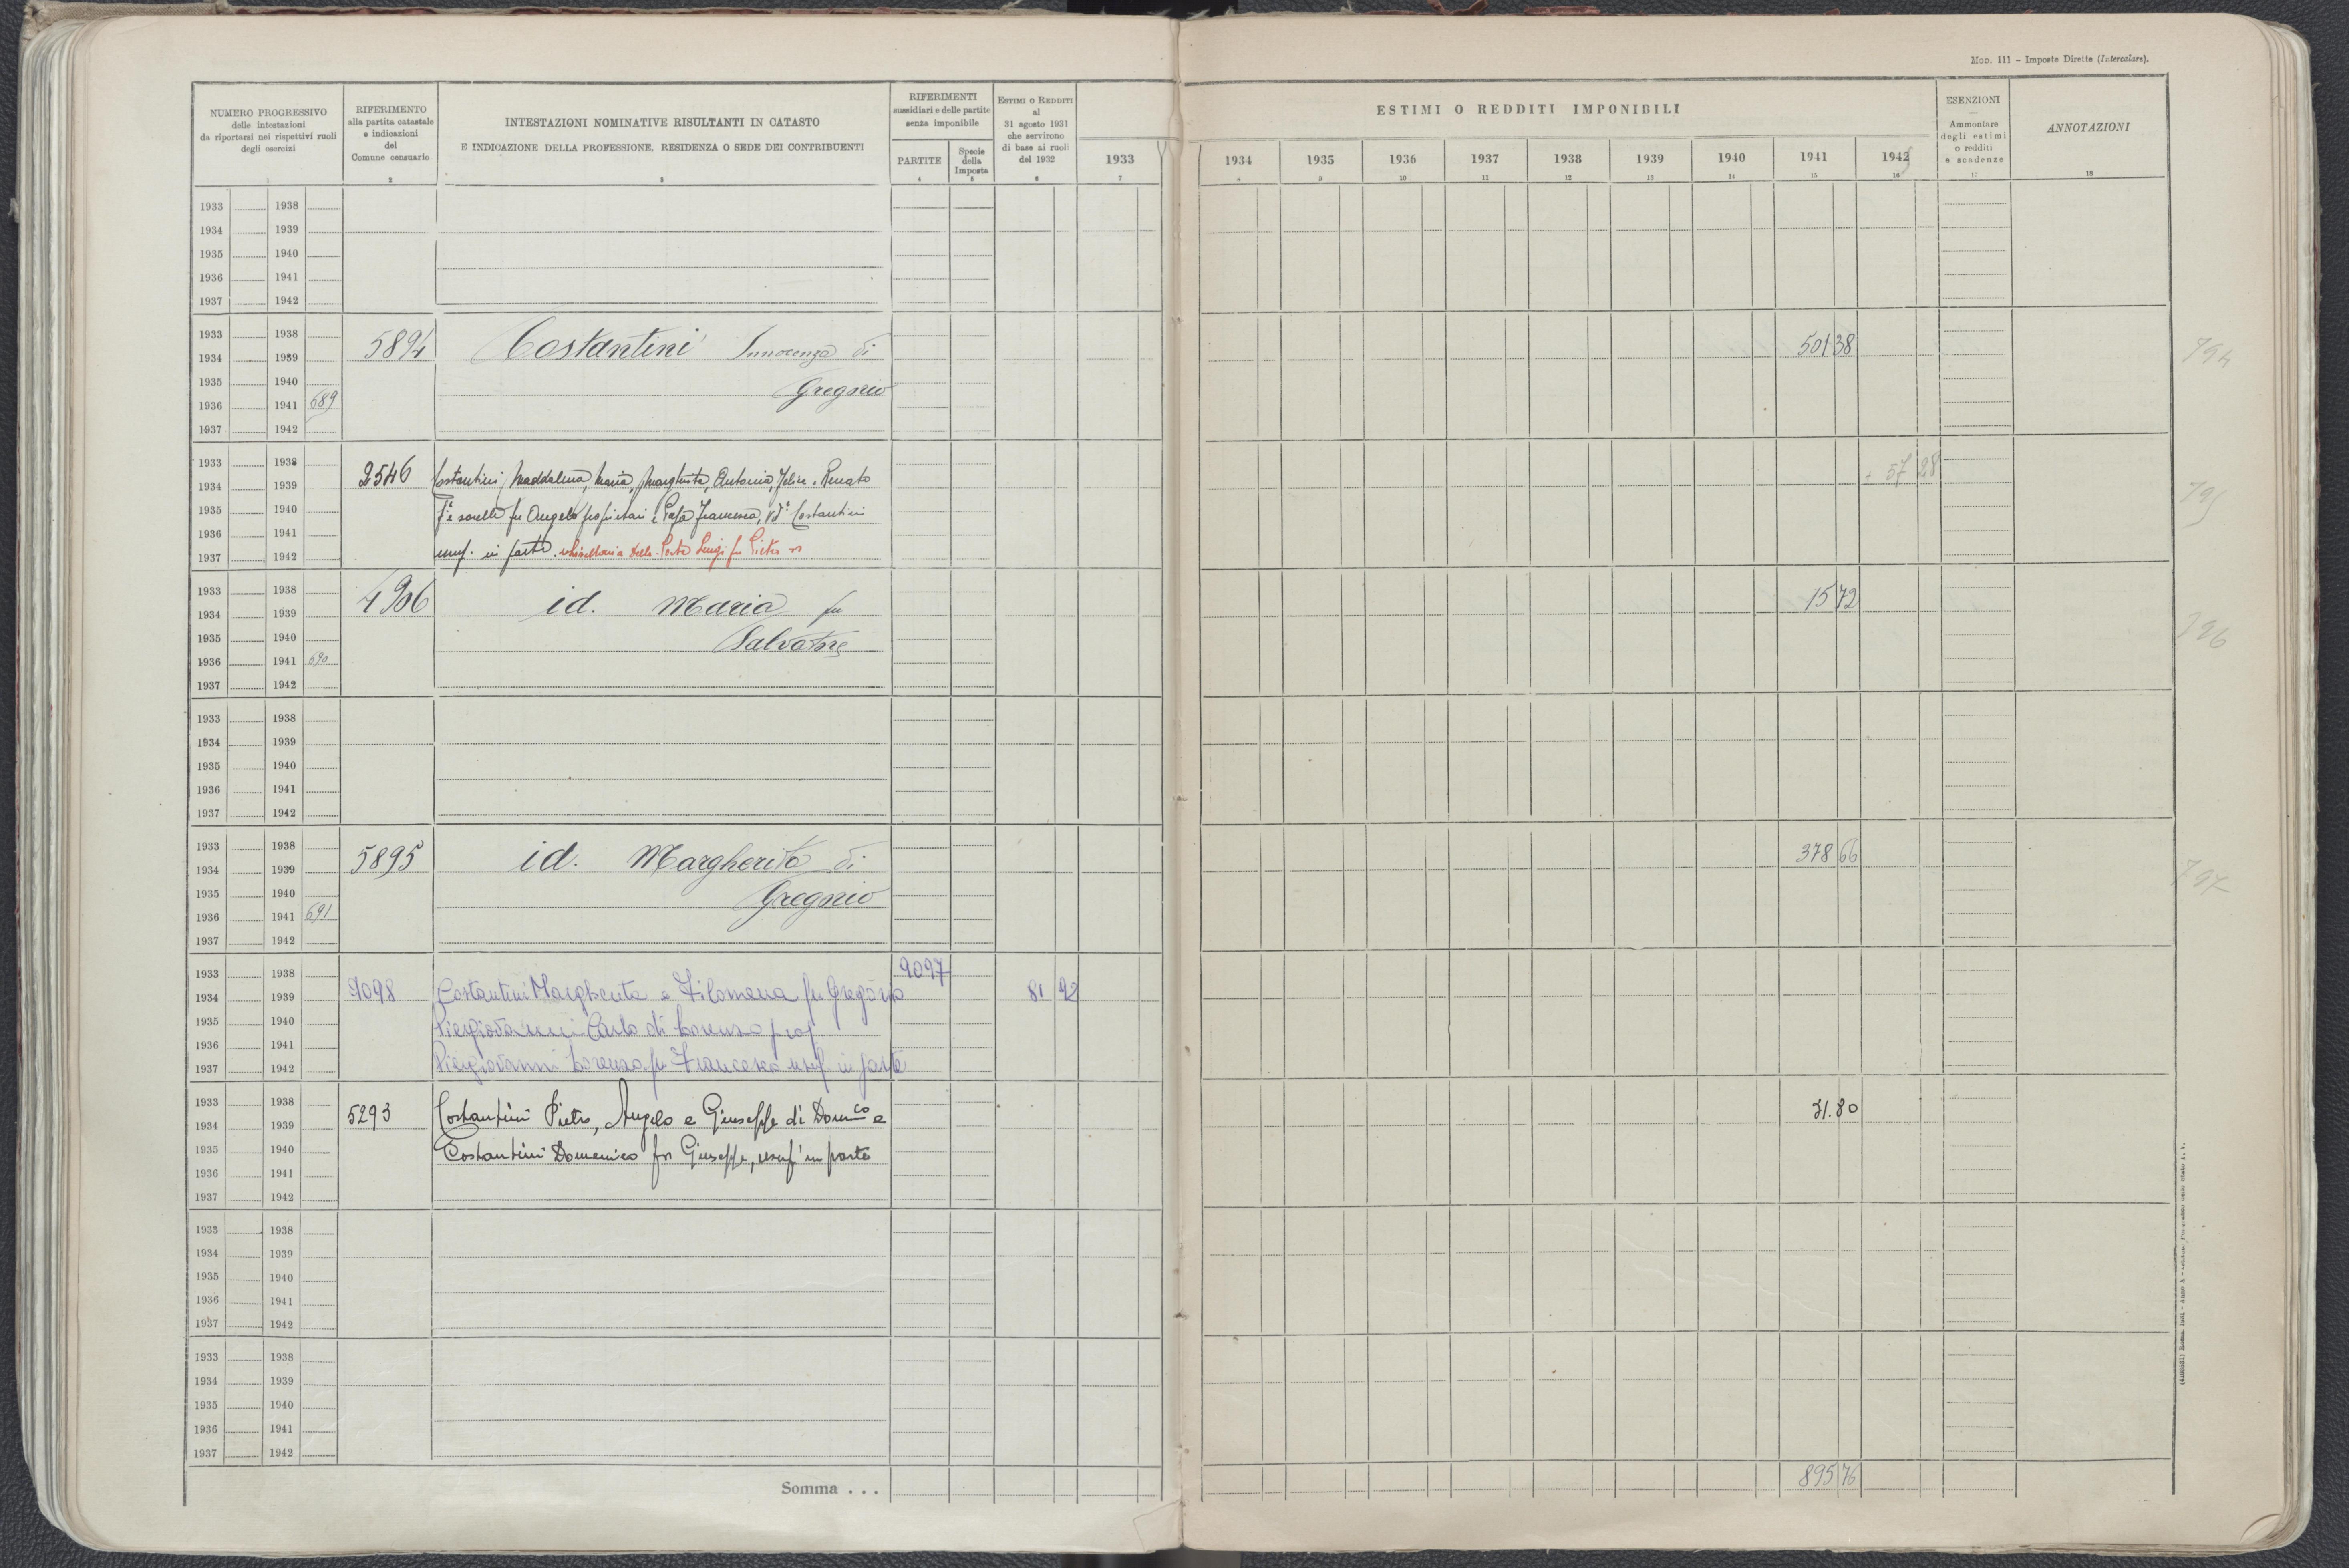 Mod. 111 - Imposte Dirette (Intercalare).
NUMERO PROGRESSIVO
delle intestazioni
da riportarsi nei rispettivi ruoli
degli esercizi
1
RIFERIMENTO
alla partita catastale
e indicazioni
del
Comune censuario
2
INTESTAZIONI NOMINATIVE RISULTANTI IN CATASTO
E INDICAZIONE DELLA PROFESSIONE, RESIDENZA O SEDE DEI CONTRIBUENTI
3
RIFERIMENTI
sussidiari e delle partite
senza imponibile
PARTITE
4
Specie
della
Imposta
5
Estimi o Redditi
al
31 agosto 1931
che servirono
di base ai ruoli
del 1932
6
1933
7
ESTIMI O REDDITI IMPONIBILI
1934 1935 1936 1937 1938 1939 1940 1941 1942
8 9 10 11 12 13 14 15 16
ESENZIONI
Ammontare
degli estimi
o redditi
e scadenze
17
ANNOTAZIONI
18
1933 1938
1934 1939
1935 1940
1936 1941
1937 1942
1933 1938
1934 1939
5894 Costantini Innocenza di 501 38 794
1935 1940
Gregorio
1936 1941 689
1937 1942
1933 1938
2546 Costantini Maddalena, Maria, Margherita, Antonia, Felice e Renato 57 28
1934 1939
795
1935 1940
sorelle fu Angelo proprietari e Francesca, Costantini
1936 1941
1937 1942
usuf. in parte. Luigi fu Pietro
1933 1938
4906 id. Maria fu 15 72
1934 1939
796
1935 1940
Salvatore
1936 1941 690
1937 1942
1933 1938
1934 1939
1935 1940
1936 1941
1937 1942
1933 1938
5895 id. Margherita di 378 66
1934 1939
797
1935 1940
Gregorio
1936 1941 691
1937 1942
1933 1938
9097
1934 1939
9098 Costantini Margherita e Filomena fu Gregorio 81 92
1935 1940
Piergiovanni Carlo di Lorenzo prop
1936 1941
1937 1942
Piergiovanni Lorenzo fu Francesco usuf in parte
1933 1938
5293 Costantini Pietro, Angelo e Giuseppe di Domco e 31.80
1934 1939
1935 1940
Costantini Domenico fu Giuseppe, usuf in parte
1936 1941
1937 1942
1933 1938
1934 1939
1935 1940
1936 1941
1937 1942
1933 1938
1934 1939
1935 1940
1936 1941
1937 1942
Somma . . . 895 76